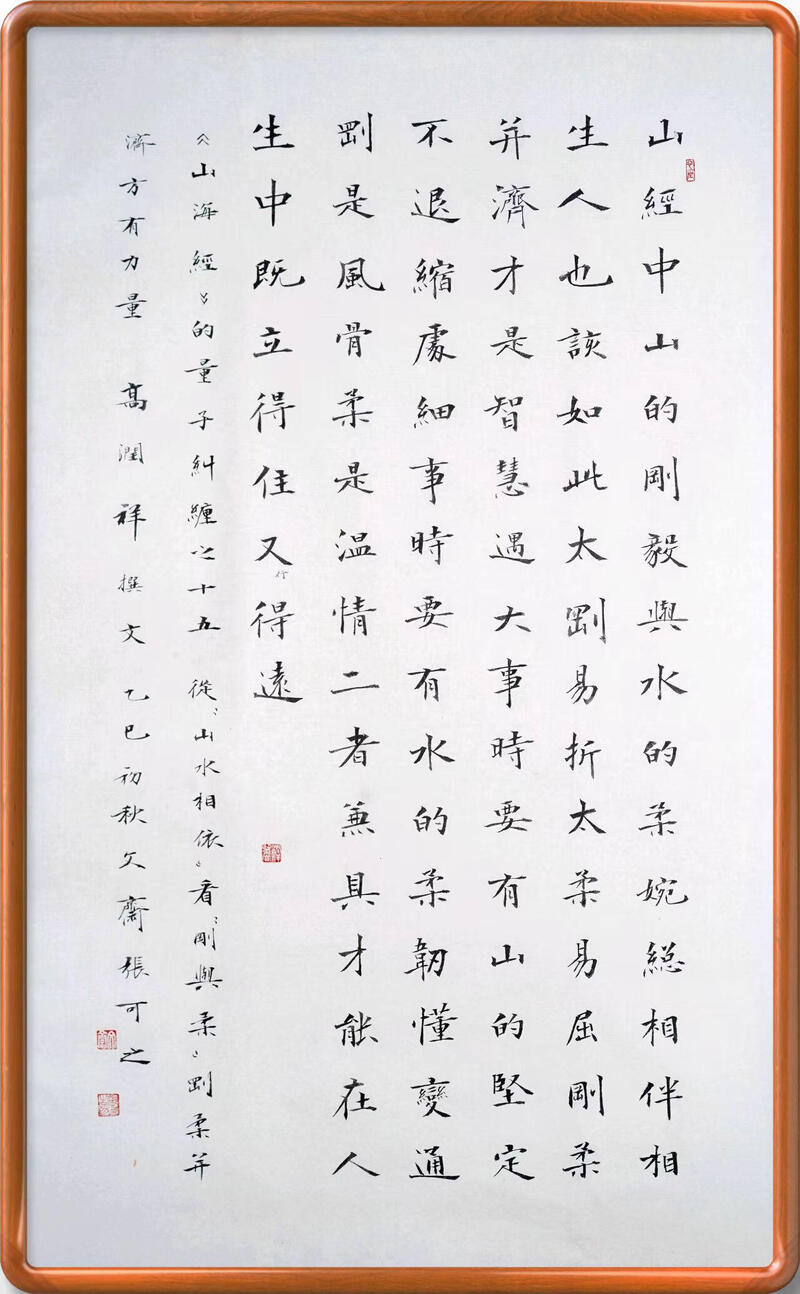 山經中山的剛毅與水的柔婉總相伴相
生人也該如此太剛易折太柔易屈剛柔
并濟才是智慧遇大事時要有山的堅定
不退縮處細事時要有水的柔韌懂變通
剛是風骨柔是温情二者兼具才能在人
生中既立得住又行得遠
《山海經》的量子糾纏之十五 從“山水相依”看“剛與柔”剛柔并
濟方有力量 高潤祥撰文 乙巳初秋文齋張可之